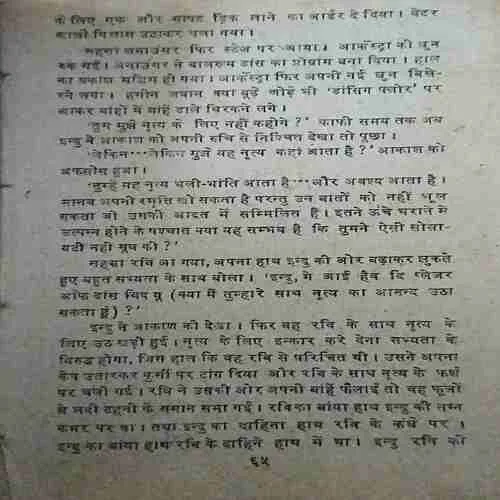 के लिए एक और साफ्ट ड्रिंक लाने का आर्डर दे दिया। वेटर
खाली गिलास उठाकर चला गया।
सहसा अनाउंसर फिर स्टेज पर आया। आर्केस्ट्रा की धुन
रुक गई। अनाउंसर ने बालरूम डांस का प्रोग्राम बना दिया। हाल
का प्रकाश मद्धिम हो गया। आर्केस्ट्रा फिर अपनी नई धुन बिखे-
रने लगा। हसीन जवान क्या बूढ़े जोड़े भी 'डांसिंग फ्लोर' पर
आकर बांहों में बांहें डाले थिरकने लगे।
'तुम मुझे नृत्य के लिए नहीं कहोगे?' काफी समय तक जब
इन्दु ने आकाश को अपनी रुचि से निश्चिंत देखा तो पूछा।
'लेकिन···लेकिन मुझे यह नृत्य कहां आता है?' आकाश को
अफसोस हुआ।
'तुम्हें यह नृत्य भली-भांति आता है···और अवश्य आता है।
मानव अपनी स्मृति खो सकता है परन्तु उन बातों को नहीं भूल
सकता जो उसकी आदत में सम्मिलित हैं। इतने ऊंचे घराने में
उत्पन्न होने के पश्चात क्या यह सम्भव है कि तुमने ऐसी सोसा-
यटी नहीं मूव की?'
सहसा रवि आ गया, अपना हाथ इन्दु की ओर बढ़ाकर झुकते
हुए बहुत सभ्यता के साथ बोला। 'इन्दु, मे आई हैव दि प्लेजर
आफ डांस विद यू (क्या मैं तुम्हारे साथ नृत्य का आनन्द उठा
सकता हूं)?'
इन्दु ने आकाश को देखा। फिर वह रवि के साथ नृत्य के
लिए उठ खड़ी हुई। नृत्य के लिए इन्कार कर देना सभ्यता के
विरुद्ध होगा, जिस हाल कि वह रवि से परिचित थी। उसने अपना
केप उतारकर कुर्सी पर टांग दिया और रवि के साथ नृत्य के फर्श
पर चली गई। रवि ने उसकी ओर अपनी बांहें फैलाईं तो वह फूलों
से लदी टहनी के समान समा गई। रवि का बांया हाथ इन्दु की नग्न
कमर पर था। तथा इन्दु का दाहिना हाथ रवि के कंधे पर।
इन्दु का बांया हाथ रवि के दाहिने हाथ में था। इन्दु रवि को
६५